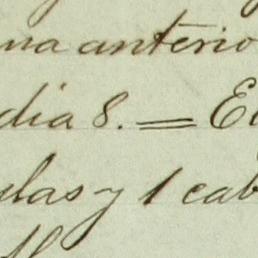 na anterio
dia 8. = E
ulas y 1 cab